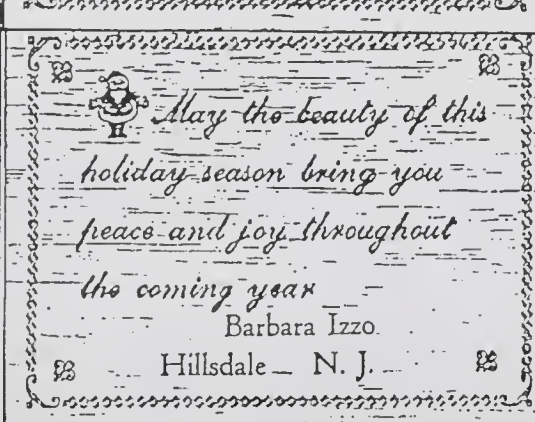 May the beauty of this
holiday season bring you
peace and joy throughout
the coming year
Barbara Izzo
Hillsdale N. J.